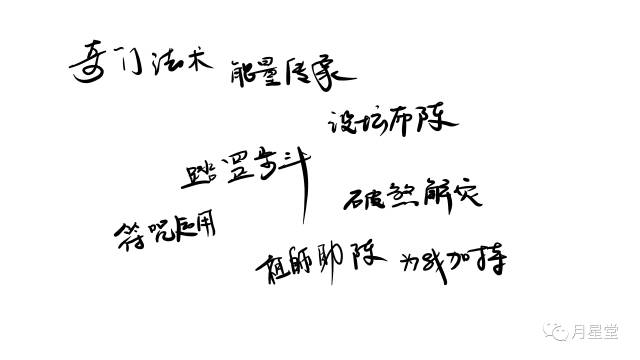 奇门法术 能量传承
设坛布阵
踏罡步斗
破煞解灾
符咒启用
祖师助阵 为我加持
月星堂